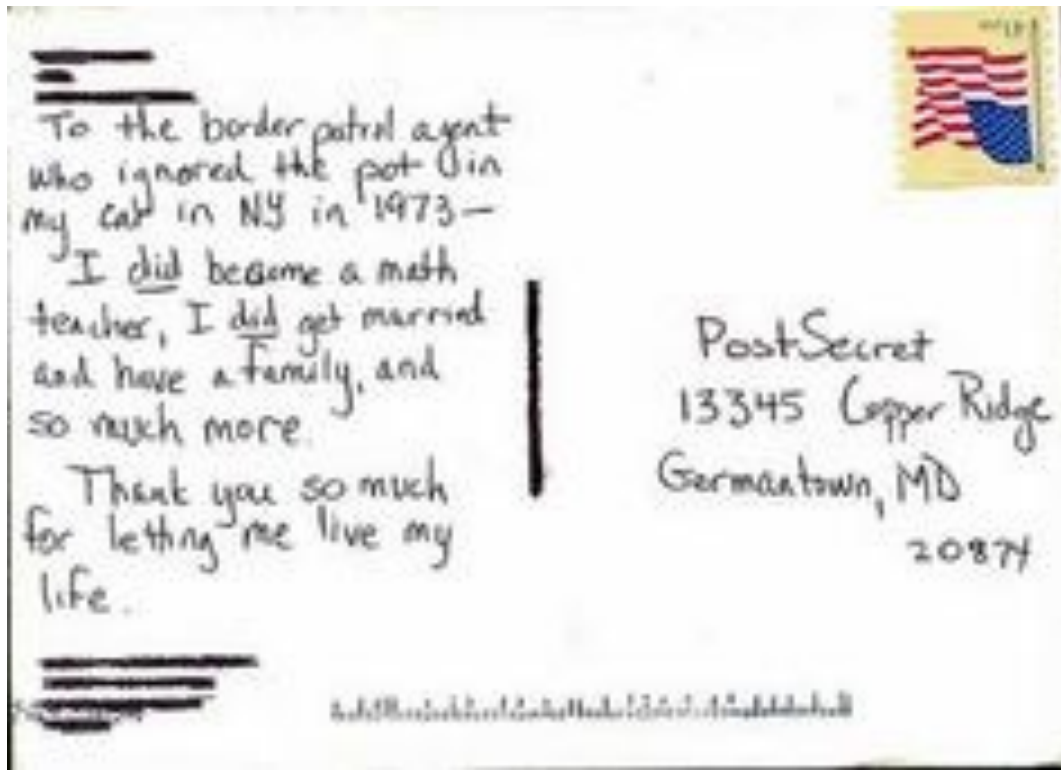 To the border patrol agent
who ignored the pot in
my car in NY in 1973—
I did become a math
teacher, I did get married
and have a family, and
so much more.
Thank you so much
for letting me live my
life.
PostSecret
13345 Copper Ridge
Germantown, MD
20874